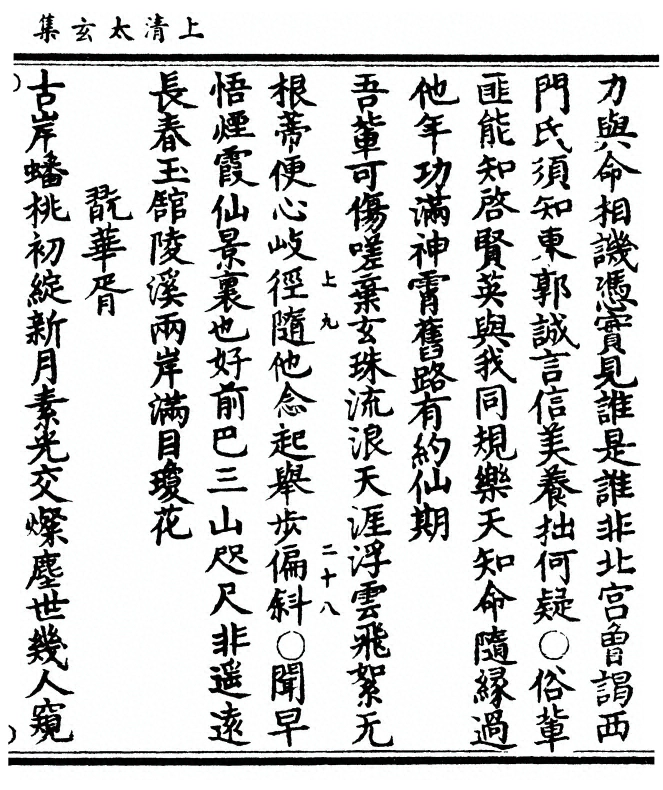 上清太玄集
力與命相譏憑實見誰是誰非北宮魯謁西
門氏須知東郭誠言信美養拙何疑○俗輩
匪能知啓賢英與我同規樂天知命隨緣過
他年功滿神霄舊路有約仙期
吾輩可傷嗟棄玄珠流浪天涯浮雲飛絮无
上九
二十八
根蒂便心岐徑隨他念起舉步偏斜○聞早
悟煙霞仙景裏也好前巴三山咫尺非遥遠
長春玉館陵溪兩岸滿目瓊花
翫華胥
古岸蟠桃初綻新月素光交燦塵世幾人窺